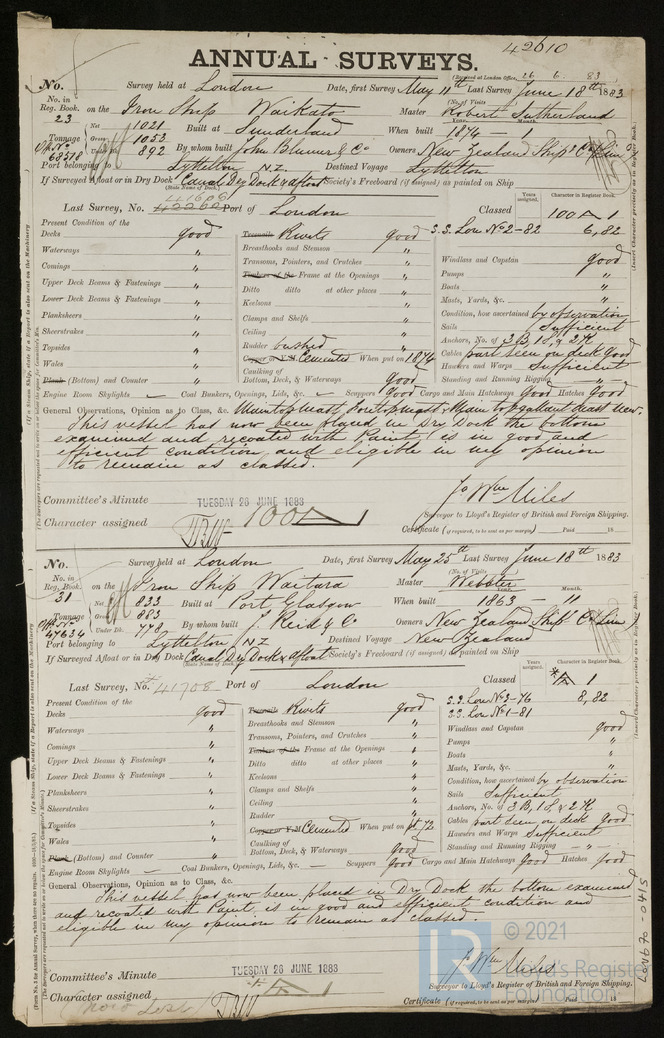 42610
ANNUAL SURVEYS.
(Received at London Office, 26 . 6 . 83)
No. Survey held at London Date, first Survey May 11th Last Survey June 18th 1883
(No. of Visits )
No. in Reg. Book. 23 on the Iron Ship Waikato Master Robert Sutherland
Tonnage Net 1021 Built at Sunderland When built Year. 1874 Month.
Gross 1053
Under Dk. 892 By whom built John Blumer & Co Owners New Zealand Ship Co Lim
Off No 68518
Port belonging to Lyttelton N.Z. Destined Voyage Lyttelton
If Surveyed Afloat or in Dry Dock Canal Dry Dock & afloat Society's Freeboard (if assigned) as painted on Ship
(State Name of Dock.)
Last Survey, No. Port of London Classed Years assigned. Character in Register Book. 100 A 1
Present Condition of the
Decks good Treenails Rivets good S.S. Lon No 2-82 6,82
Waterways " Breasthooks and Stemson " Windlass and Capstan good
Comings " Transoms, Pointers, and Crutches " Pumps "
Upper Deck Beams & Fastenings " Timbers of the Frame at the Openings " Boats "
Lower Deck Beams & Fastenings " Ditto ditto at other places " Masts, Yards, &c. "
Planksheers " Keelsons " Condition, how ascertained by observation
Sheerstrakes " Clamps and Shelfs " Sails Sufficient
Topsides " Ceiling " Anchors, No. of 3 B, 1 S, & 2 K
Wales " Rudder bushed Cables part seen on deck good
Copper or Y.M. Cemented When put on 1874 Hawsers and Warps Sufficient
Plank (Bottom) and Counter " Caulking of Bottom, Deck, & Waterways Good Standing and Running Rigging "
Engine Room Skylights — Coal Bunkers, Openings, Lids, &c. — Scuppers Good Cargo and Main Hatchways Good Hatches Good
General Observations, Opinion as to Class, &c. Maintopmast, Foretopmast & Main topgallant mast new.
This vessel has now been placed in Dry Dock the bottom
examined and recoated with Paint, is in good and
efficient condition, and eligible in my opinion
to remain as classed.
Jo Wm Miles
Committee's Minute TUESDAY 26 JUNE 1883
Surveyor to Lloyd's Register of British and Foreign Shipping.
Character assigned 100 A 1
Certificate (if required, to be sent as per margin) Paid 18
No. Survey held at London Date, first Survey May 25th Last Survey June 18th 1883
(No. of Visits )
No. in Reg. Book. 31 on the Iron Ship Waitara Master Webster
Tonnage Net 833 Built at Port Glasgow When built Year. 1863 Month. 11
Gross 883
Under Dk. By whom built J. Reid & Co Owners New Zealand Ship Co Lim
Off No 47634
Port belonging to Lyttelton NZ Destined Voyage New Zealand
If Surveyed Afloat or in Dry Dock Canal Dry Dock & afloat Society's Freeboard (if assigned) as painted on Ship
(State Name of Dock.)
Last Survey, No. 41708 Port of London Classed Years assigned. Character in Register Book. A 1
Present Condition of the
Decks good Treenails Rivets good S.S. Lon No 3-76 8,82
S.S. Lon No 1-81
Waterways " Breasthooks and Stemson " Windlass and Capstan good
Comings " Transoms, Pointers, and Crutches " Pumps "
Upper Deck Beams & Fastenings " Timbers of the Frame at the Openings " Boats "
Lower Deck Beams & Fastenings " Ditto ditto at other places " Masts, Yards, &c. "
Planksheers " Keelsons " Condition, how ascertained by observation
Sheerstrakes " Clamps and Shelfs " Sails Sufficient
Topsides " Ceiling " Anchors, No. of 3 B, 1 S, & 2 K
Wales " Rudder " Cables part seen on deck good
Copper or Y.M. Cemented When put on 72 Hawsers and Warps Sufficient
Plank (Bottom) and Counter " Caulking of Bottom, Deck, & Waterways Good Standing and Running Rigging "
Engine Room Skylights — Coal Bunkers, Openings, Lids, &c. — Scuppers Good Cargo and Main Hatchways Good Hatches Good
General Observations, Opinion as to Class, &c.
This vessel has now been placed in Dry Dock the bottom examined
and recoated with Paint, is in good and efficient condition and
eligible in my opinion to remain as classed.
Jo Wm Miles
Committee's Minute TUESDAY 26 JUNE 1883
Surveyor to Lloyd's Register of British and Foreign Shipping.
Character assigned A 1
Certificate (if required, to be sent as per margin) Paid 18
LON670-0415
© 2021
LR
Lloyd's Register
Foundation